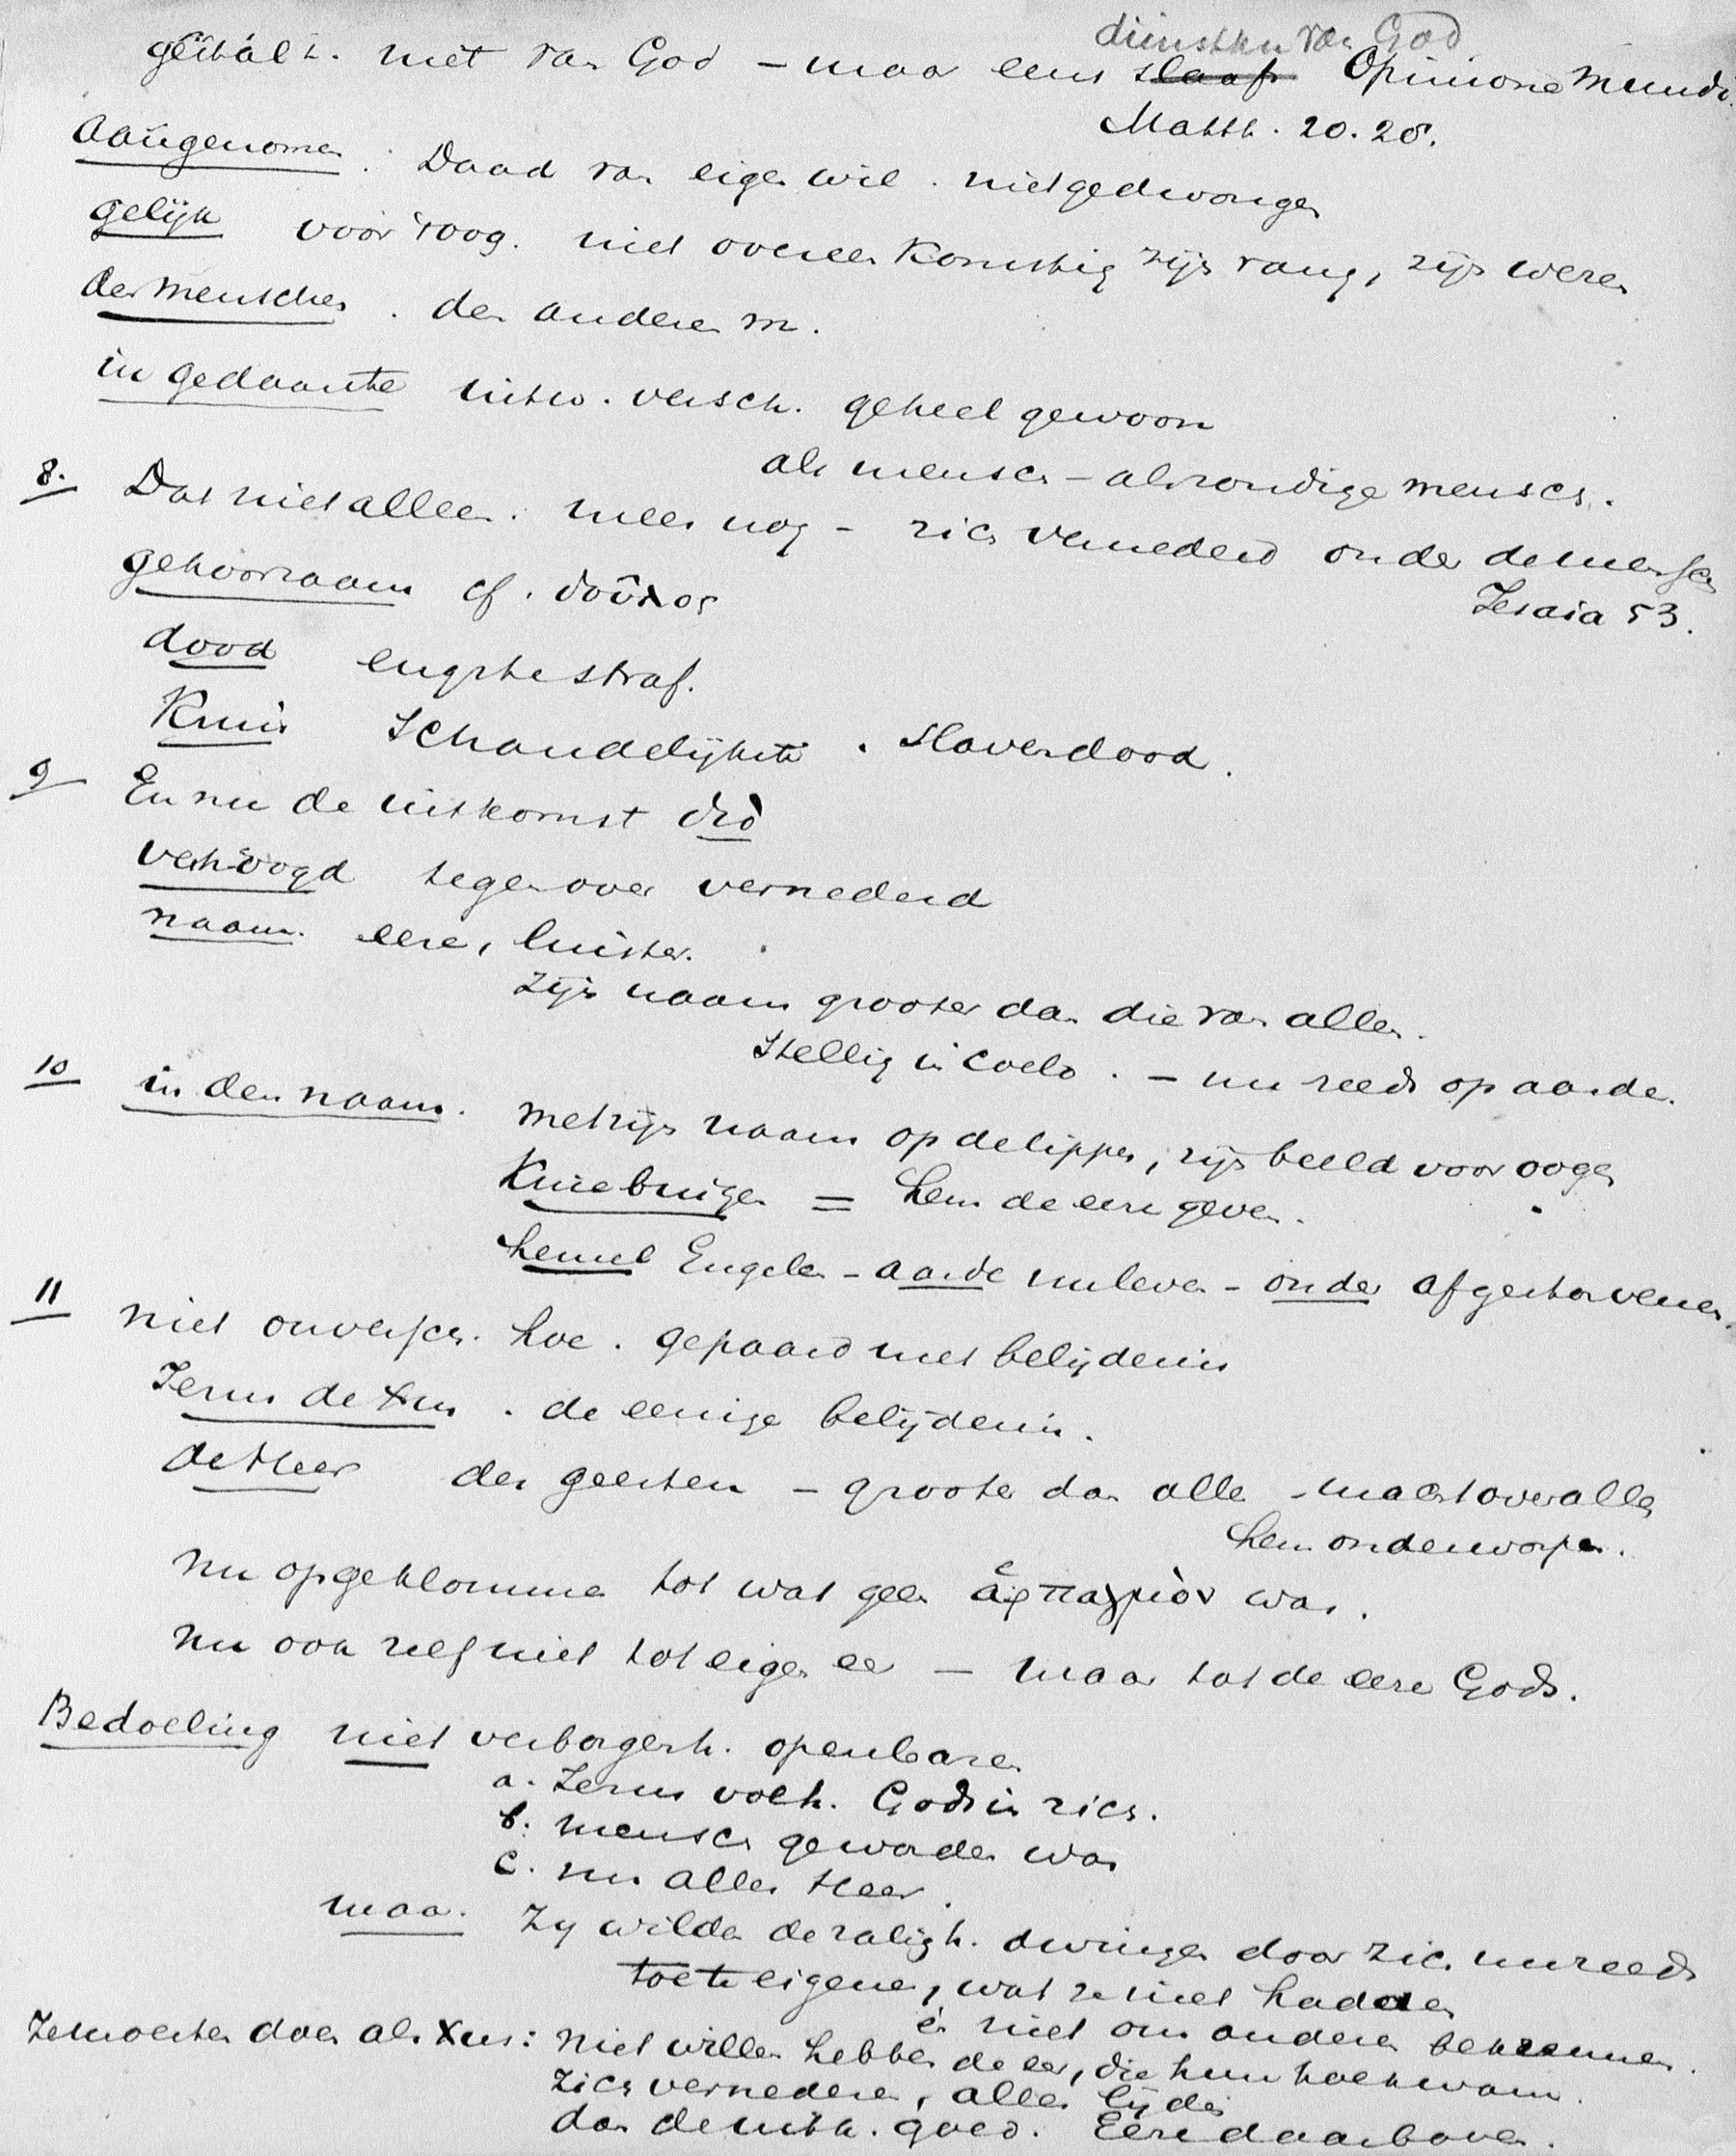 dienstkn van God
gestalt. niet van God – maar eens slaafs Opinione mundi.
Matth. 20.28.
aangenomen. Daad van eigen wil. niet gedwongen
gelijk voor 't oog. niet overeenkomstig zijn rang, zijn wezen
der menschen. der anderen m.
in gedaante uitw. versch. geheel gewoon
als mensch – als zondige mensch.
8. Dat niet alleen. meer nog – zich vernederd onder de menschen
Jesaia 53.
gehoorzaam cf. δοῦλος
dood ergste straf.
Kruis Schandelijkste. Slavendood.
9 En nu de uitkomst διὸ
verhoogd tegenover vernederd
naam. eere, luister.
Zijn naam grooter dan die van allen.
Stellig in coelo. – nu reeds op aarde.
10 in den naam. met zijn naam op de lippen, zijn beeld voor oogen
Kniebuigen = hem de eere geven.
hemel Engelen – aarde nu leven – onder afgestorvenen.
11 niet onversch. hoe. gepaard met belijdenis
Jezus de Xus. de eenige belijdenis.
de Heer der geesten – grooter dan alle – macht over allen
hem onderworpen.
Nu opgeklommen tot wat geen ἁρπαγμὸν was.
Nu ook zelf niet tot eigen eer – maar tot de eere Gods.
Bedoeling niet verborgenh. openbaren
a. Jezus volh. Gods in zich.
b. mensch geworden was
c. nu aller Heer.
maar. Zij wilden de zaligh. dwingen door zich nu reeds
toe te eigenen, wat ze niet hadden
en niet om anderen bekommen.
Ze moesten doen als Xus: niet willen hebben de eer, die hun toekwam.
Zich vernederen, alles lijden
dan de uitk. goed. Eere daarboven.